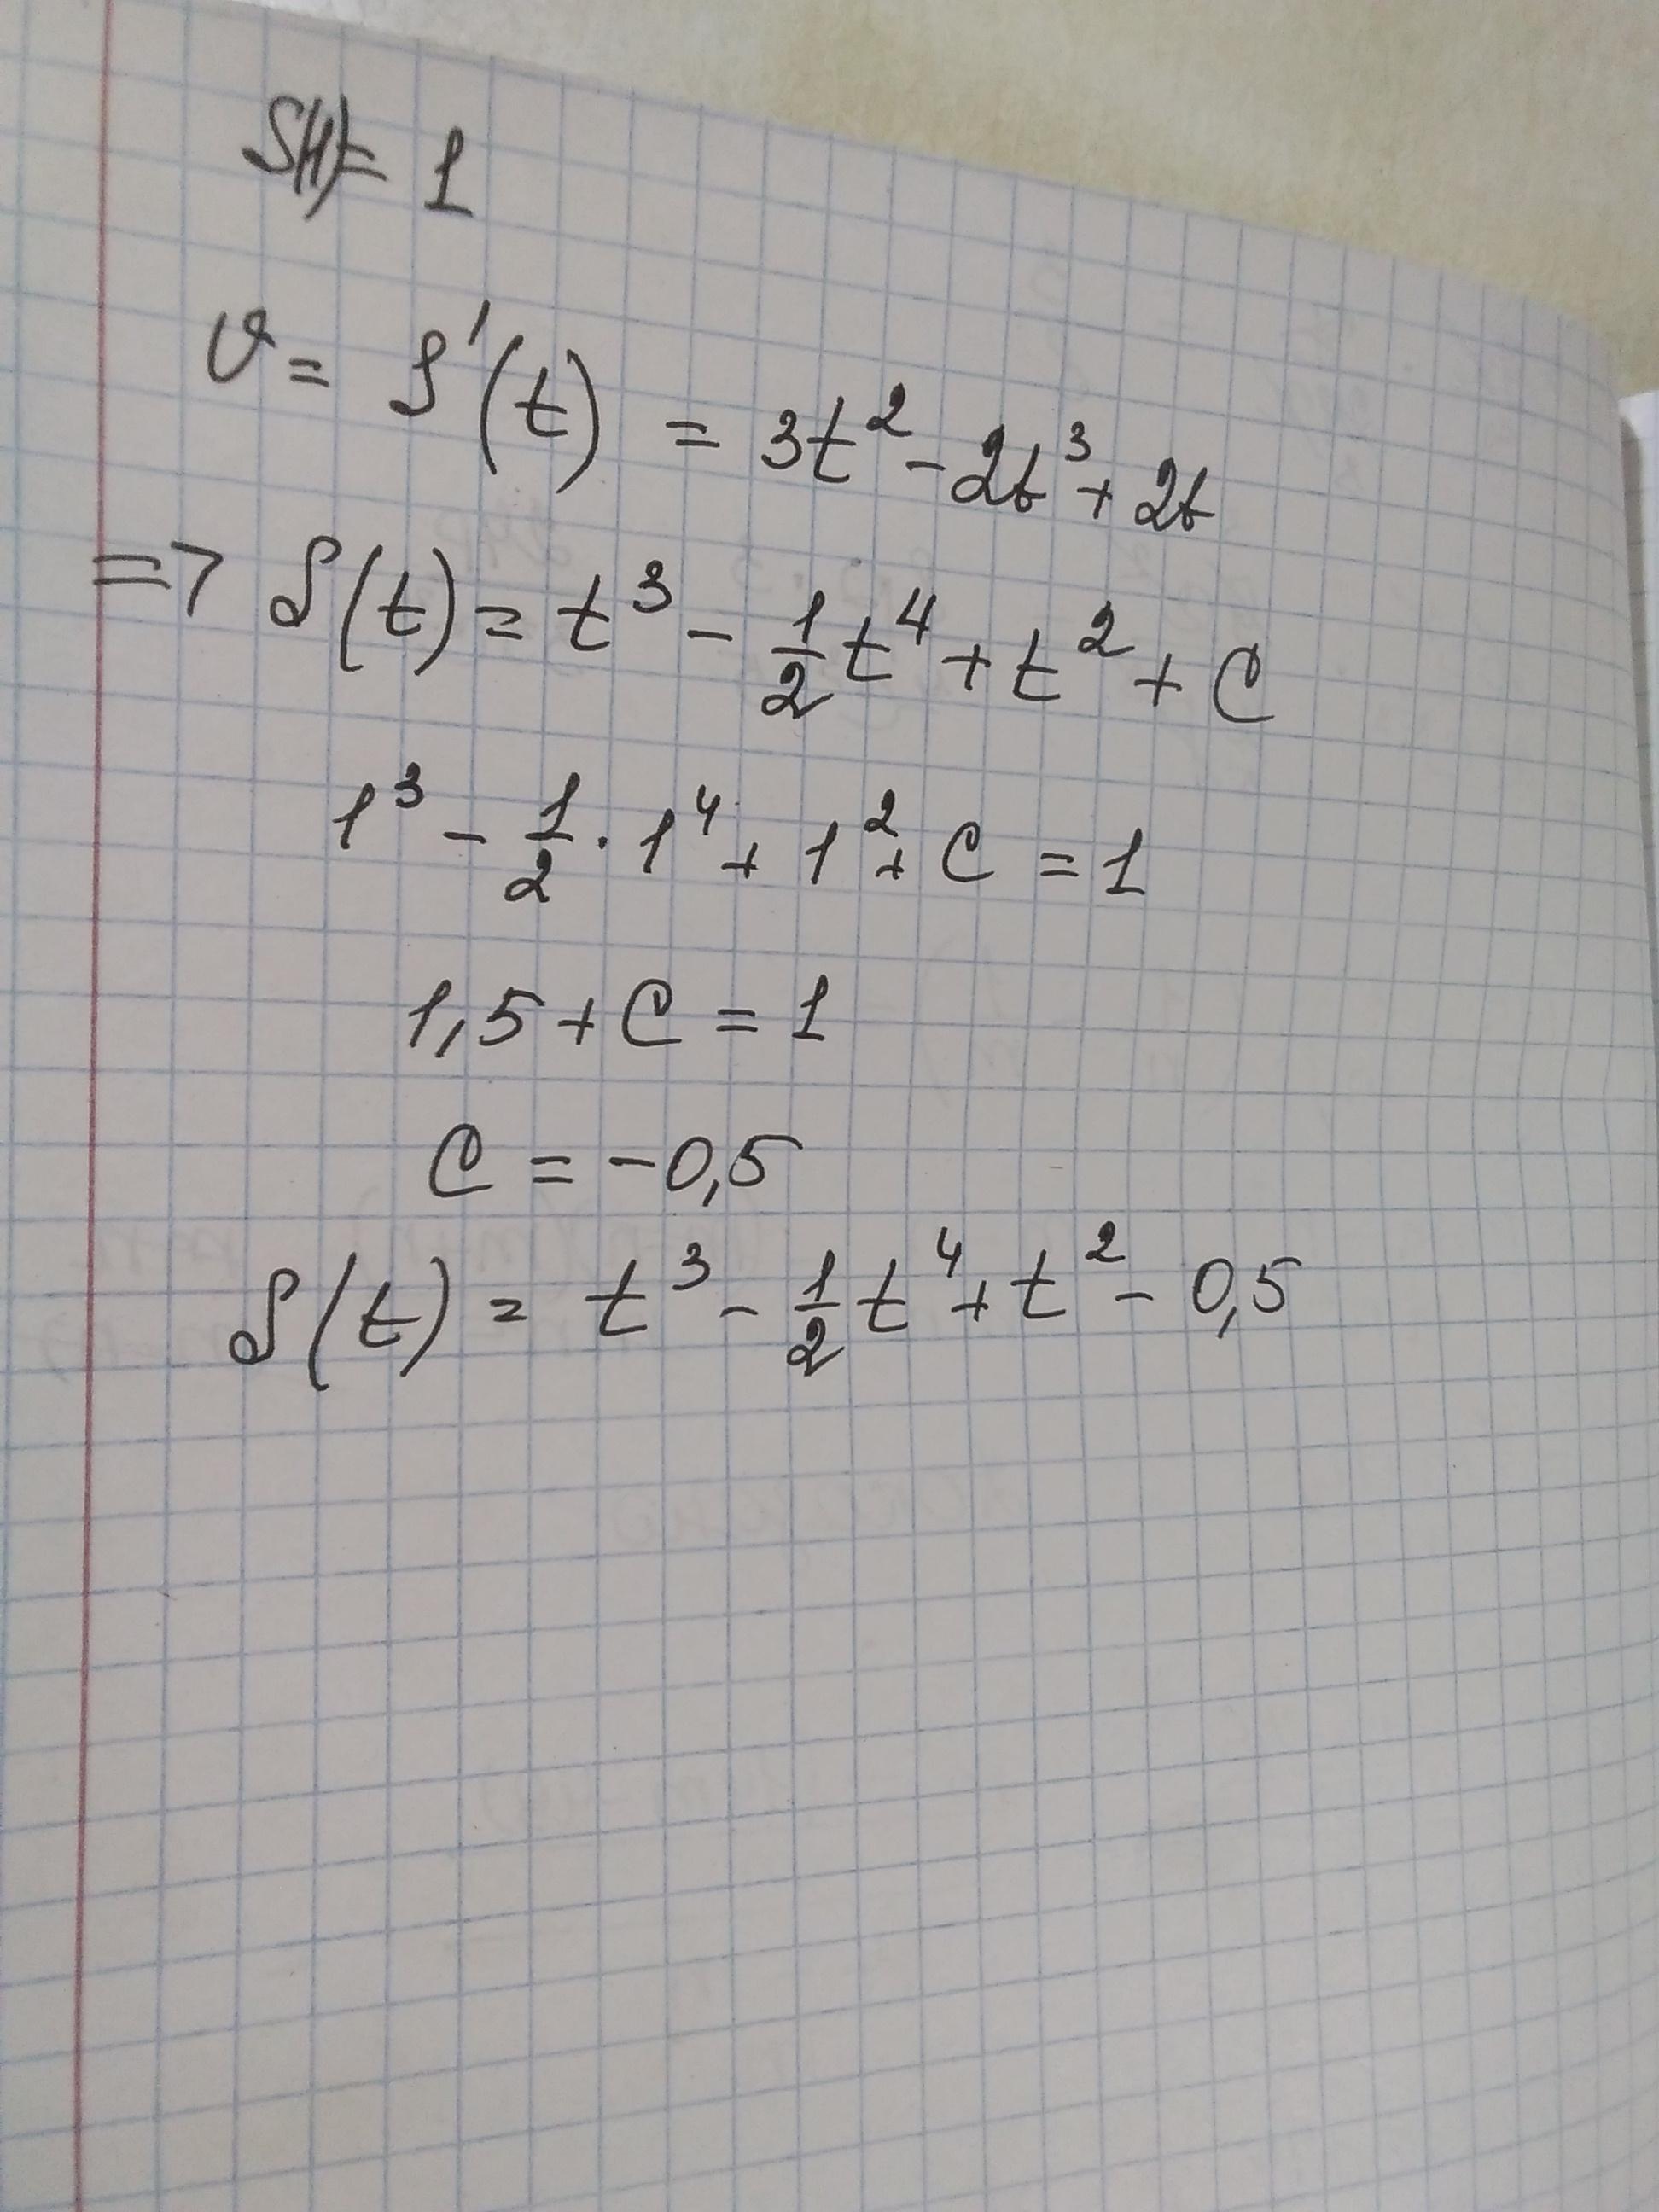 S(1) = 1
v = S'(t) = 3t² - 2t³ + 2t
=> S(t) = t³ - 1/2 t⁴ + t² + C
1³ - 1/2 · 1⁴ + 1² + C = 1
1,5 + C = 1
C = -0,5
S(t) = t³ - 1/2 t⁴ + t² - 0,5